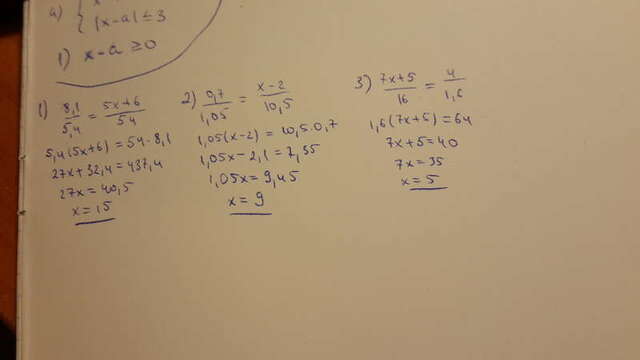 a) { x
|x-a| ≤ 3
1) x-a ≥ 0
1) 8,1/5,4 = 5x+6/54
5,4(5x+6) = 54·8,1
27x+32,4 = 437,4
27x = 40,5
x = 15
2) 0,7/1,05 = x-2/10,5
1,05(x-2) = 10,5·0,7
1,05x-2,1 = 7,35
1,05x = 9,45
x = 9
3) 7x+5/16 = 4/1,6
1,6(7x+5) = 64
7x+5 = 40
7x = 35
x = 5